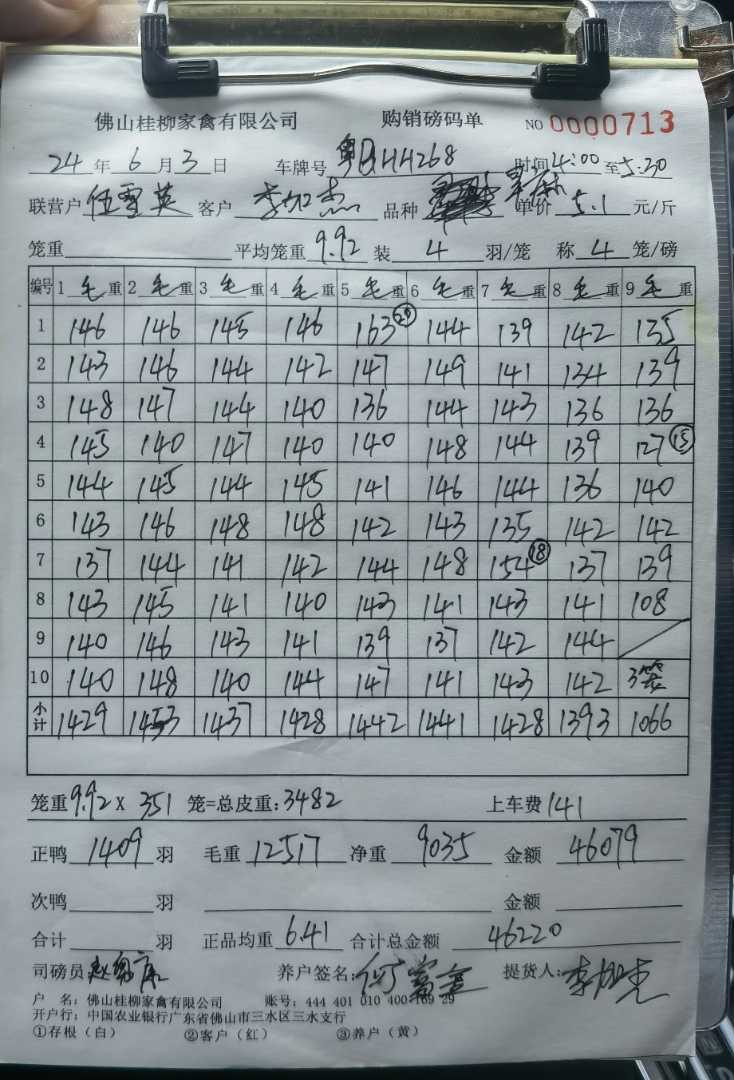 佛山桂柳家禽有限公司 购销磅码单 NO 0000713
24年6月3日 车牌号 粤 44268 时间4:00至5:30
联营户 伍雪英 客户 李加杰 品种 单价 5.1 元/斤
笼重 平均笼重 9.92 装 4 羽/笼 称 4 笼/磅
编号 1 毛重 2 毛重 3 毛重 4 毛重 5 毛重 6 毛重 7 毛重 8 毛重 9 毛重
1 146 146 145 146 163 (20) 144 139 142 135
2 143 146 144 142 147 149 141 134 139
3 148 147 144 140 136 144 143 136 136
4 145 140 147 140 140 148 144 139 127 (15)
5 144 145 144 145 141 146 144 136 140
6 143 146 148 148 142 143 135 142 142
7 137 144 141 142 144 148 154 (18) 137 139
8 143 145 141 140 143 141 143 141 108
9 140 146 143 141 139 137 142 144
10 140 148 140 144 147 141 143 142 3笼
小计 1429 1453 1437 1428 1442 1441 1428 1393 1066
笼重 9.92 X 351 笼=总皮重:3482 上车费 141
正鸭 1409 羽 毛重 12517 净重 9035 金额 46079
次鸭 羽 金额
合计 羽 正品均重 6.41 合计总金额 46220
司磅员 养户签名: 提货人:李加杰
户 名:佛山桂柳家禽有限公司 账号:444 401 010 400 169 29
开户行:中国农业银行广东省佛山市三水区三水支行
①存根(白) ②客户(红) ③养户(黄)